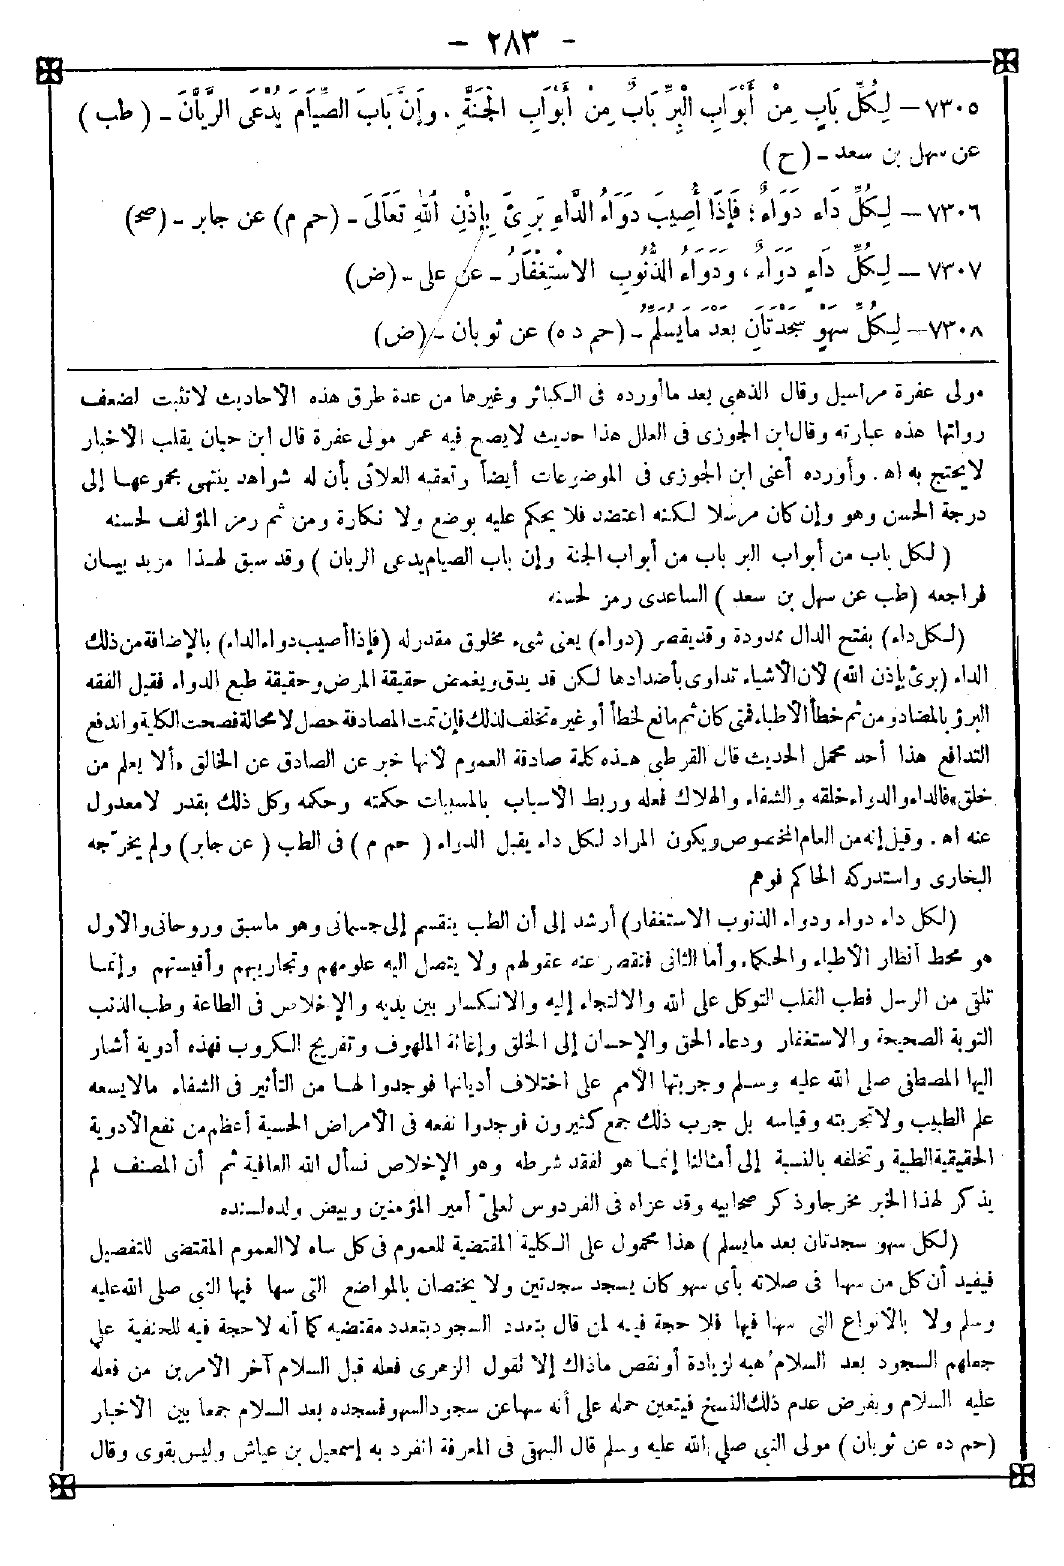 - ٢٨٣ -
٧٣٠٥ – لِكُلِّ بَابٍ مِنْ أَبْوَابِ الْبِرِّ بَابٌ مِنْ أَبْوَابِ الْجَنَّةِ ، وَإِنَّ بَابَ الصِّيَامِ يُدْعَى الرَّيَّانَ – ( طب )
عن سهل بن سعد – (ح )
٧٣٠٦ – لِكُلِّ دَاءٍ دَوَاءٌ ؛ فَإِذَا أُصِيبَ دَوَاءُ الدَّاءِ بَرِئَ بِإِذْنِ اللهِ تَعَالَى – (حم م) عن جابر – (صح)
٧٣٠٧ – لِكُلِّ دَاءٍ دَوَاءٌ ، وَدَوَاءُ الذُّنُوبِ الاسْتِغْفَارُ – عن على – (ض)
٧٣٠٨ – لِكُلِّ سَهْوٍ سَجْدَتَانِ بَعْدَ مَا يُسَلِّمُ – (حم د ه) عن ثوبان – (ض)
مولى عفرة مراسيل وقال الذهبى بعد ماأورده فى الكبائر وغيرها من عدة طرق هذه الأحاديث لاتثبت لضعف
رواتها هذه عبارته وقال ابن الجوزى فى العلل هذا حديث لايصح فيه عمر مولى عفرة قال ابن حبان يقلب الأخبار
لايحتج به اه . وأورده أعنى ابن الجوزى فى الموضوعات أيضاً وتعقبه العلائى بأن له شواهد ينتهى بمجموعها إلى
درجة الحسن وهو وإن كان مرسلا لكنه اعتضد فلا يحكم عليه بوضع ولا نكارة ومن ثم رمز المؤلف لحسنه
( لكل باب من أبواب البر باب من أبواب الجنة وإن باب الصيام يدعى الريان ) وقد سبق لهذا مزيد بيان
فراجعه (طب عن سهل بن سعد ) الساعدى رمز لحسنه
(لكل داء) بفتح الدال ممدودة وقد يقصر (دواء) يعنى شىء مخلوق مقدر له (فإذا أصيب دواء الداء) بالإضافة من ذلك
الداء (برئ بإذن الله) لأن الأشياء تداوى بأضدادها لكن قد يدق ويغمض حقيقة المرض وحقيقة طبع الدواء فيقل الفقه
البرؤ بالمضاد ومن ثم خطأ الأطباء فمتى كان ثم مانع لخطأ أو غيره تخلف لذلك فإن تمت المصادفة حصل لا محالة فصحت الكلية واندفع
التدافع هذا أحد محمل الحديث قال القرطبى هذه كلمة صادقة العموم لأنها خبر عن الصادق عن الخالق «ألا يعلم من
خلق» فالداء والدواء خلقه والشفاء والهلاك فعله وربط الأسباب بالمسببات حكمته وحكمه وكل ذلك بقدر لا معدول
عنه اه . وقيل إنه من العام المخصوص ويكون المراد لكل داء يقبل الدواء ( حم م ) فى الطب ( عن جابر) ولم يخرّجه
البخارى واستدركه الحاكم فوهم
(لكل داء دواء ودواء الذنوب الاستغفار) أرشد إلى أن الطب ينقسم إلى جسمانى وهو ماسبق وروحانى والأول
هو محط أنظار الأطباء والحكماء وأما الثانى فتقصر عنه عقولهم ولا يتصل اليه علومهم وتجاربهم وأقيستهم وإنما
تلقى من الرسل فطب القلب التوكل على الله والالتجاء إليه والانكسار بين يديه والإخلاص فى الطاعة وطب الذنب
التوبة الصحيحة والاستغفار ودعاء الحق والإحسان إلى الخلق وإغاثة الملهوف وتفريج الكروب فهذه أدوية أشار
اليها المصطفى صلى الله عليه وسلم وجربتها الأمم على اختلاف أديانها فوجدوا لها من التأثير فى الشفاء مالايسعه
علم الطبيب ولاتجربته وقياسه بل جرب ذلك جمع كثيرون فوجدوا نفعه فى الأمراض الحسية أعظم من نفع الأدوية
الحقيقية الطبية وتخلفه بالنسبة إلى أمثالنا إنما هو لفقد شرطه وهو الإخلاص نسأل الله العافية ثم أن المصنف لم
يذكر لهذا الخبر مخرجا وذكر صحابيه وقد عزاه فى الفردوس لعلىّ أمير المؤمنين وبيض ولده لسنده
(لكل سهو سجدتان بعد مايسلم ) هذا محمول على الكلية المقتضية للعموم فى كل ساه لا العموم المقتضى للتفصيل
فيفيد أن كل من سها فى صلاته بأى سهو كان يسجد سجدتين ولا يختصان بالمواضع التى سها فيها النبى صلى الله عليه
وسلم ولا بالأنواع التى سها فيها فلا حجة فيه لمن قال بتعدد السجود بتعدد مقتضيه كما أنه لاحجة فيه للحنفية على
جعلهم السجود بعد السلام هبه لزيادة أو نقص ماذاك إلا لقول الزهرى فعله قبل السلام آخر الأمرين من فعله
عليه السلام وبفرض عدم ذلك النسخ فيتعين حمله على أنه سها عن سجود السهو فسجده بعد السلام جمعا بين الأخبار
(حم ده عن ثوبان ) مولى النبى صلى الله عليه وسلم قال البيهقى فى المعرفة انفرد به إسمعيل بن عياش وليس بقوى وقال